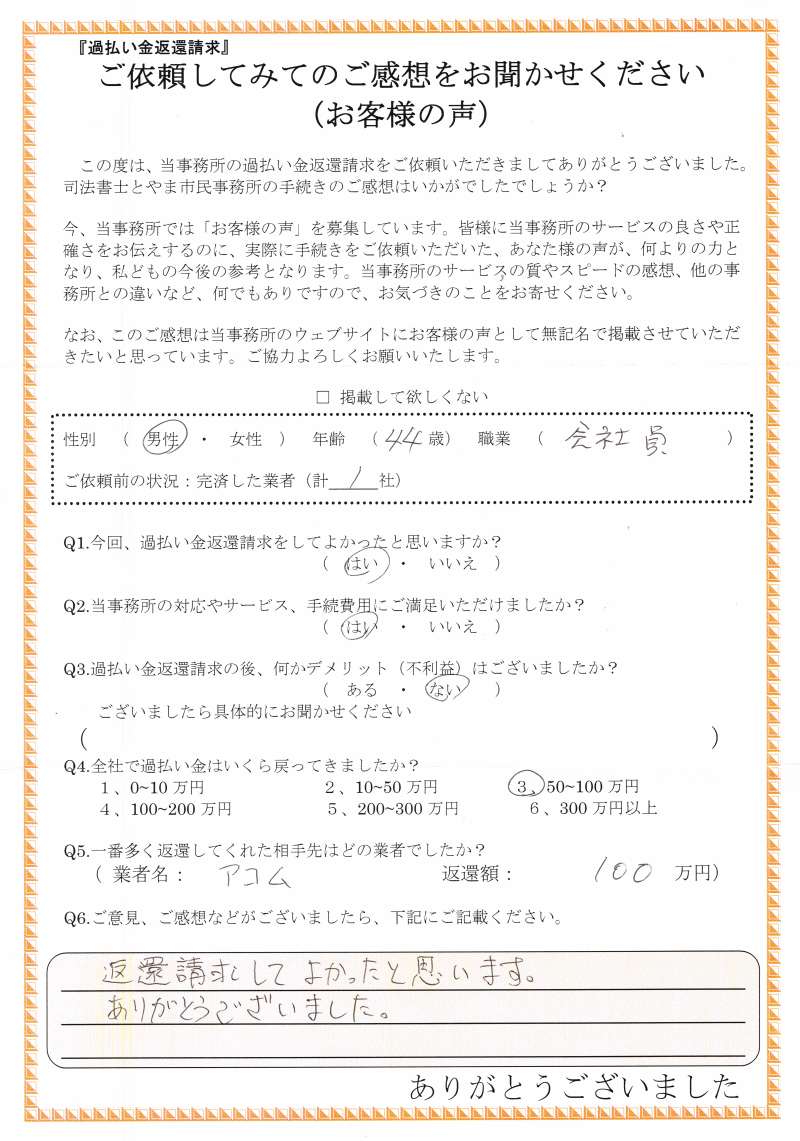 『過払い金返還請求』
ご依頼してみてのご感想をお聞かせください
(お客様の声)
この度は、当事務所の過払い金返還請求をご依頼いただきましてありがとうございました。
司法書士とやま市民事務所の手続きのご感想はいかがでしたでしょうか？
今、当事務所では「お客様の声」を募集しています。皆様に当事務所のサービスの良さや正
確さをお伝えするのに、実際に手続きをご依頼いただいた、あなた様の声が、何よりの力と
なり、私どもの今後の参考となります。当事務所のサービスの質やスピードの感想、他の事
務所との違いなど、何でもありですので、お気づきのことをお寄せください。
なお、このご感想は当事務所のウェブサイトにお客様の声として無記名で掲載させていただ
きたいと思っています。ご協力よろしくお願いいたします。
□ 掲載して欲しくない
性別 （ 男性 ・ 女性 ） 年齢 （ 44 歳） 職業 （ 会社員 ）
ご依頼前の状況：完済した業者（計 1 社）
Q1.今回、過払い金返還請求をしてよかったと思いますか？
（ はい ・ いいえ ）
Q2.当事務所の対応やサービス、手続費用にご満足いただけましたか？
（ はい ・ いいえ ）
Q3.過払い金返還請求の後、何かデメリット（不利益）はございましたか？
（ ある ・ ない ）
ございましたら具体的にお聞かせください
( )
Q4.全社で過払い金はいくら戻ってきましたか？
１、0~10 万円 ２、10~50 万円 ３、50~100 万円
４、100~200 万円 ５、200~300 万円 ６、300 万円以上
Q5.一番多く返還してくれた相手先はどの業者でしたか？
（ 業者名： アコム 返還額： 100 万円）
Q6.ご意見、ご感想などがございましたら、下記にご記載ください。
返還請求してよかったと思います。
ありがとうございました。
ありがとうございました